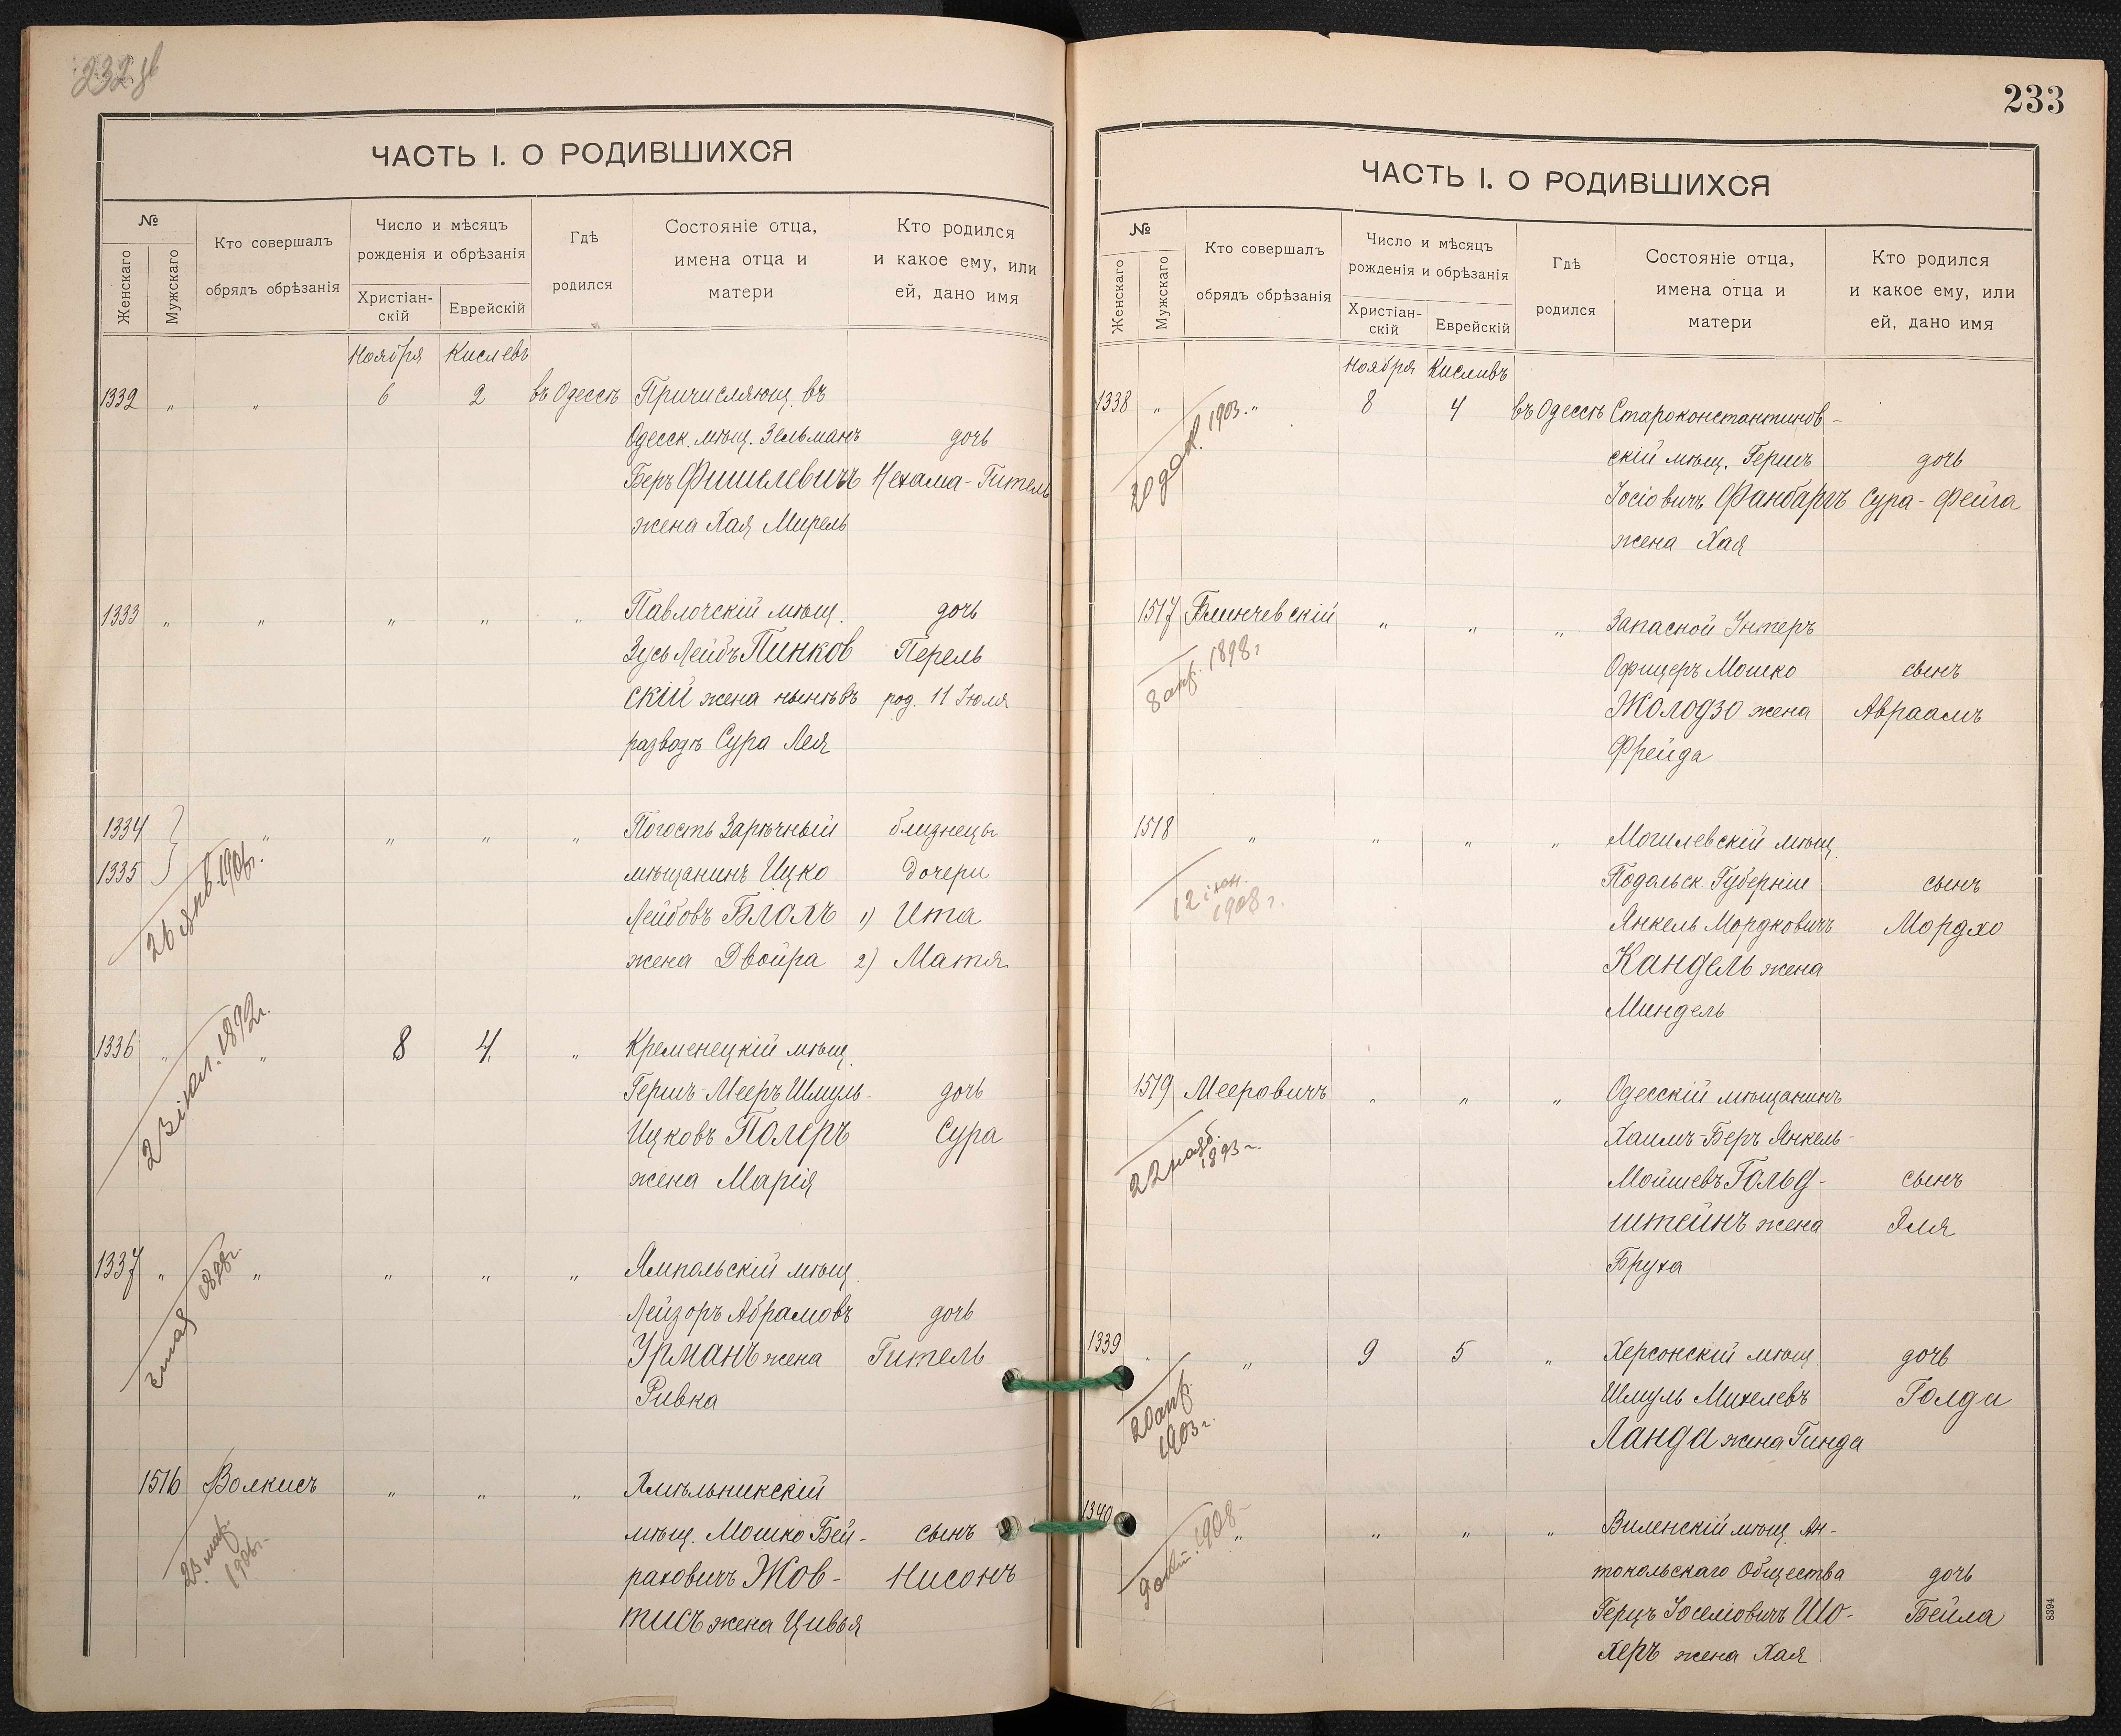 232 об
ЧАСТЬ I. О РОДИВШИХСЯ
№
Женскаго
Мужскаго
Кто совершалъ
обрядъ обрѣзанія
Число и мѣсяцъ
рожденія и обрѣзанія
Христіан-
скій
Еврейскій
Гдѣ
родился
Состояніе отца,
имена отца и
матери
Кто родился
и какое ему, или
ей, дано имя
Ноября Кислевъ
1332 " " 6 2 въ Одессѣ Причисляющ. въ
Одесск. мѣщ. Зельманъ дочь
Беръ Фишилевичъ Нехама-Гитель
жена Хая Мирель
1333 " " " " " Павлочскій мѣщ. дочь
Зусь Лейбъ Пинков Перель
скій жена нынѣ въ род. 11 Іюля
разводѣ Сура Лея
1334 " " " " Погость Зарѣчный близнецы
1335 мѣщанинъ Ицко дочери
26 янв. 1906 г.
Лейбовъ Блохъ 1) Ита
жена Двойра 2) Матя
1336 " " 8 4 " Кременецкій мѣщ.
23 іюл. 1892 г.
Гершъ-Мееръ Шмуль- дочь
Ицковъ Полеръ Сура
жена Марія
1337 " " " " " Ямпольскій мѣщ.
мая 1898 г.
Лейзоръ Абрамовъ дочь
Урманъ жена Гитель
Ривка
1516 Волкисъ " " " Хмѣльникскій
23 мар. 1906 г.
мѣщ. Мошко Бей- сынъ
раховичъ Жов- Нисонъ
тисъ жена Цивья
233
ЧАСТЬ I. О РОДИВШИХСЯ
№
Женскаго
Мужскаго
Кто совершалъ
обрядъ обрѣзанія
Число и мѣсяцъ
рожденія и обрѣзанія
Христіан-
скій
Еврейскій
Гдѣ
родился
Состояніе отца,
имена отца и
матери
Кто родился
и какое ему, или
ей, дано имя
Ноября Кисливъ
1338 " " 8 4 въ Одессѣ Староконстантинов-
20 дек. 1903
скій мѣщ. Гершъ дочь
Іосіовичъ Фанбаргъ Сура-Фейга
жена Хая
1517 Блинчевскій " " " Запасной Унтеръ
8 апр. 1898 г
Офицеръ Мошко сынъ
Жолодзо жена Авраамъ
Фрейда
1518 " " " " Могилевскій мѣщ.
12 іюн.
1908 г.
Подольск. Губерніи сынъ
Янкель Мордковичъ Мордхо
Кандель жена
Миндель
1519 Мееровичъ " " " Одесскій мѣщанинъ
22 нояб.
1893 г.
Хаимъ-Беръ Янкель-
Мойшевъ Гольд- сынъ
штейнъ жена Эля
Бруха
1339 " " 9 5 " Херсонскій мѣщ. дочь
20 апр.
1903 г.
Шмуль Михелевъ Голда
Ланда жена Гинда
1340 " " " " Виленскій мѣщ. Ан-
1908
токольскаго Общества дочь
Герцъ Іоселіовичъ Шо- Бейла
херъ жена Хая
8394